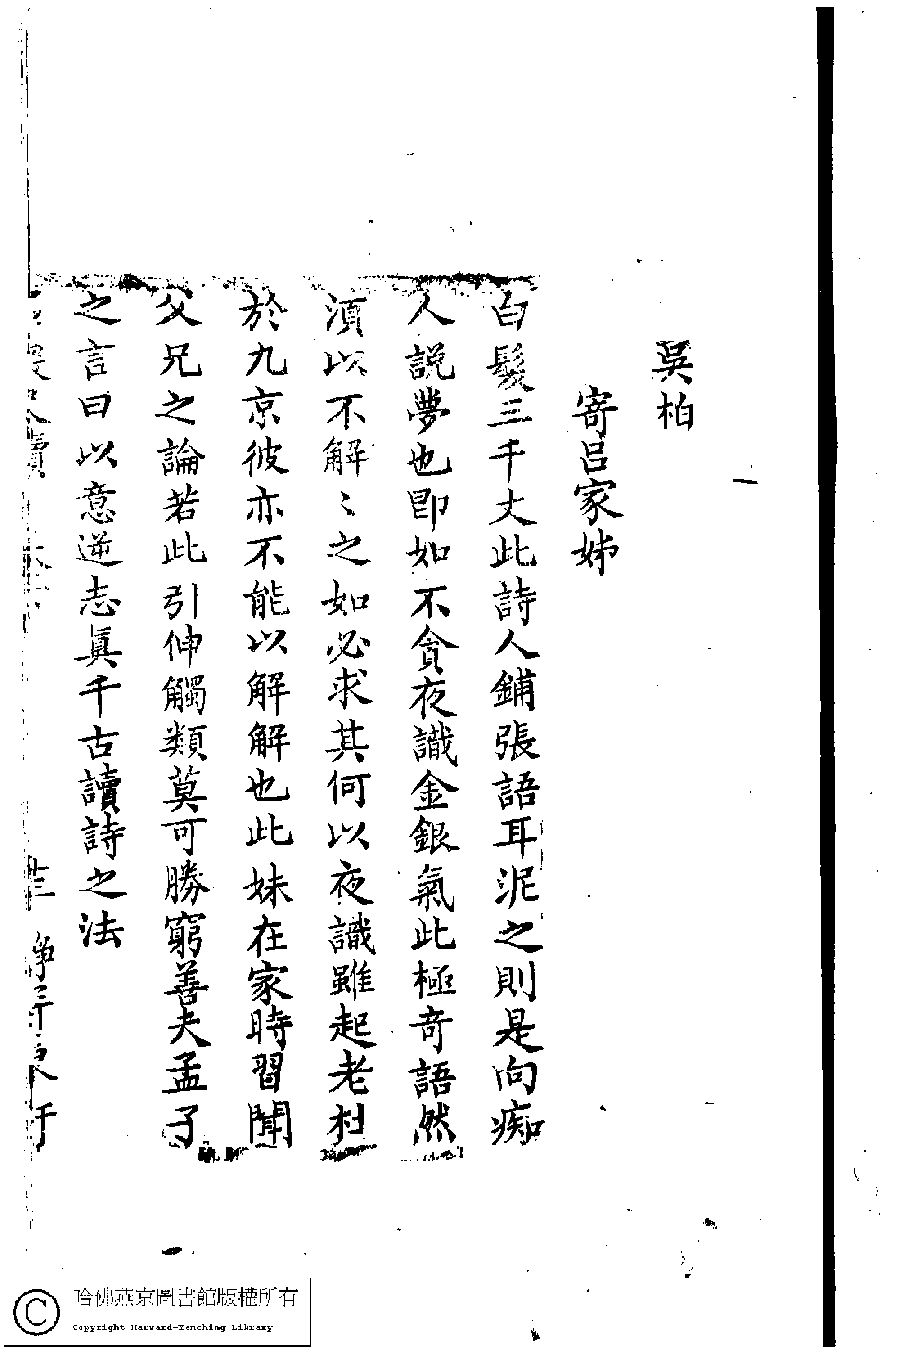 吳柏
寄呂家姊
白髮三千丈此詩人鋪張語耳泥之則是向痴
人說夢也即如不貪夜識金銀氣此極奇語然
須以不解〻之如必求其何以夜識雖起老杜
於九京彼亦不能以解解也此妹在家時習聞
父兄之論若此引伸觸類莫可勝窮善夫孟子
之言曰以意逆志眞千古讀詩之法
哈佛燕京圖書館版權所有
Copyright Harvard-Yenching Library